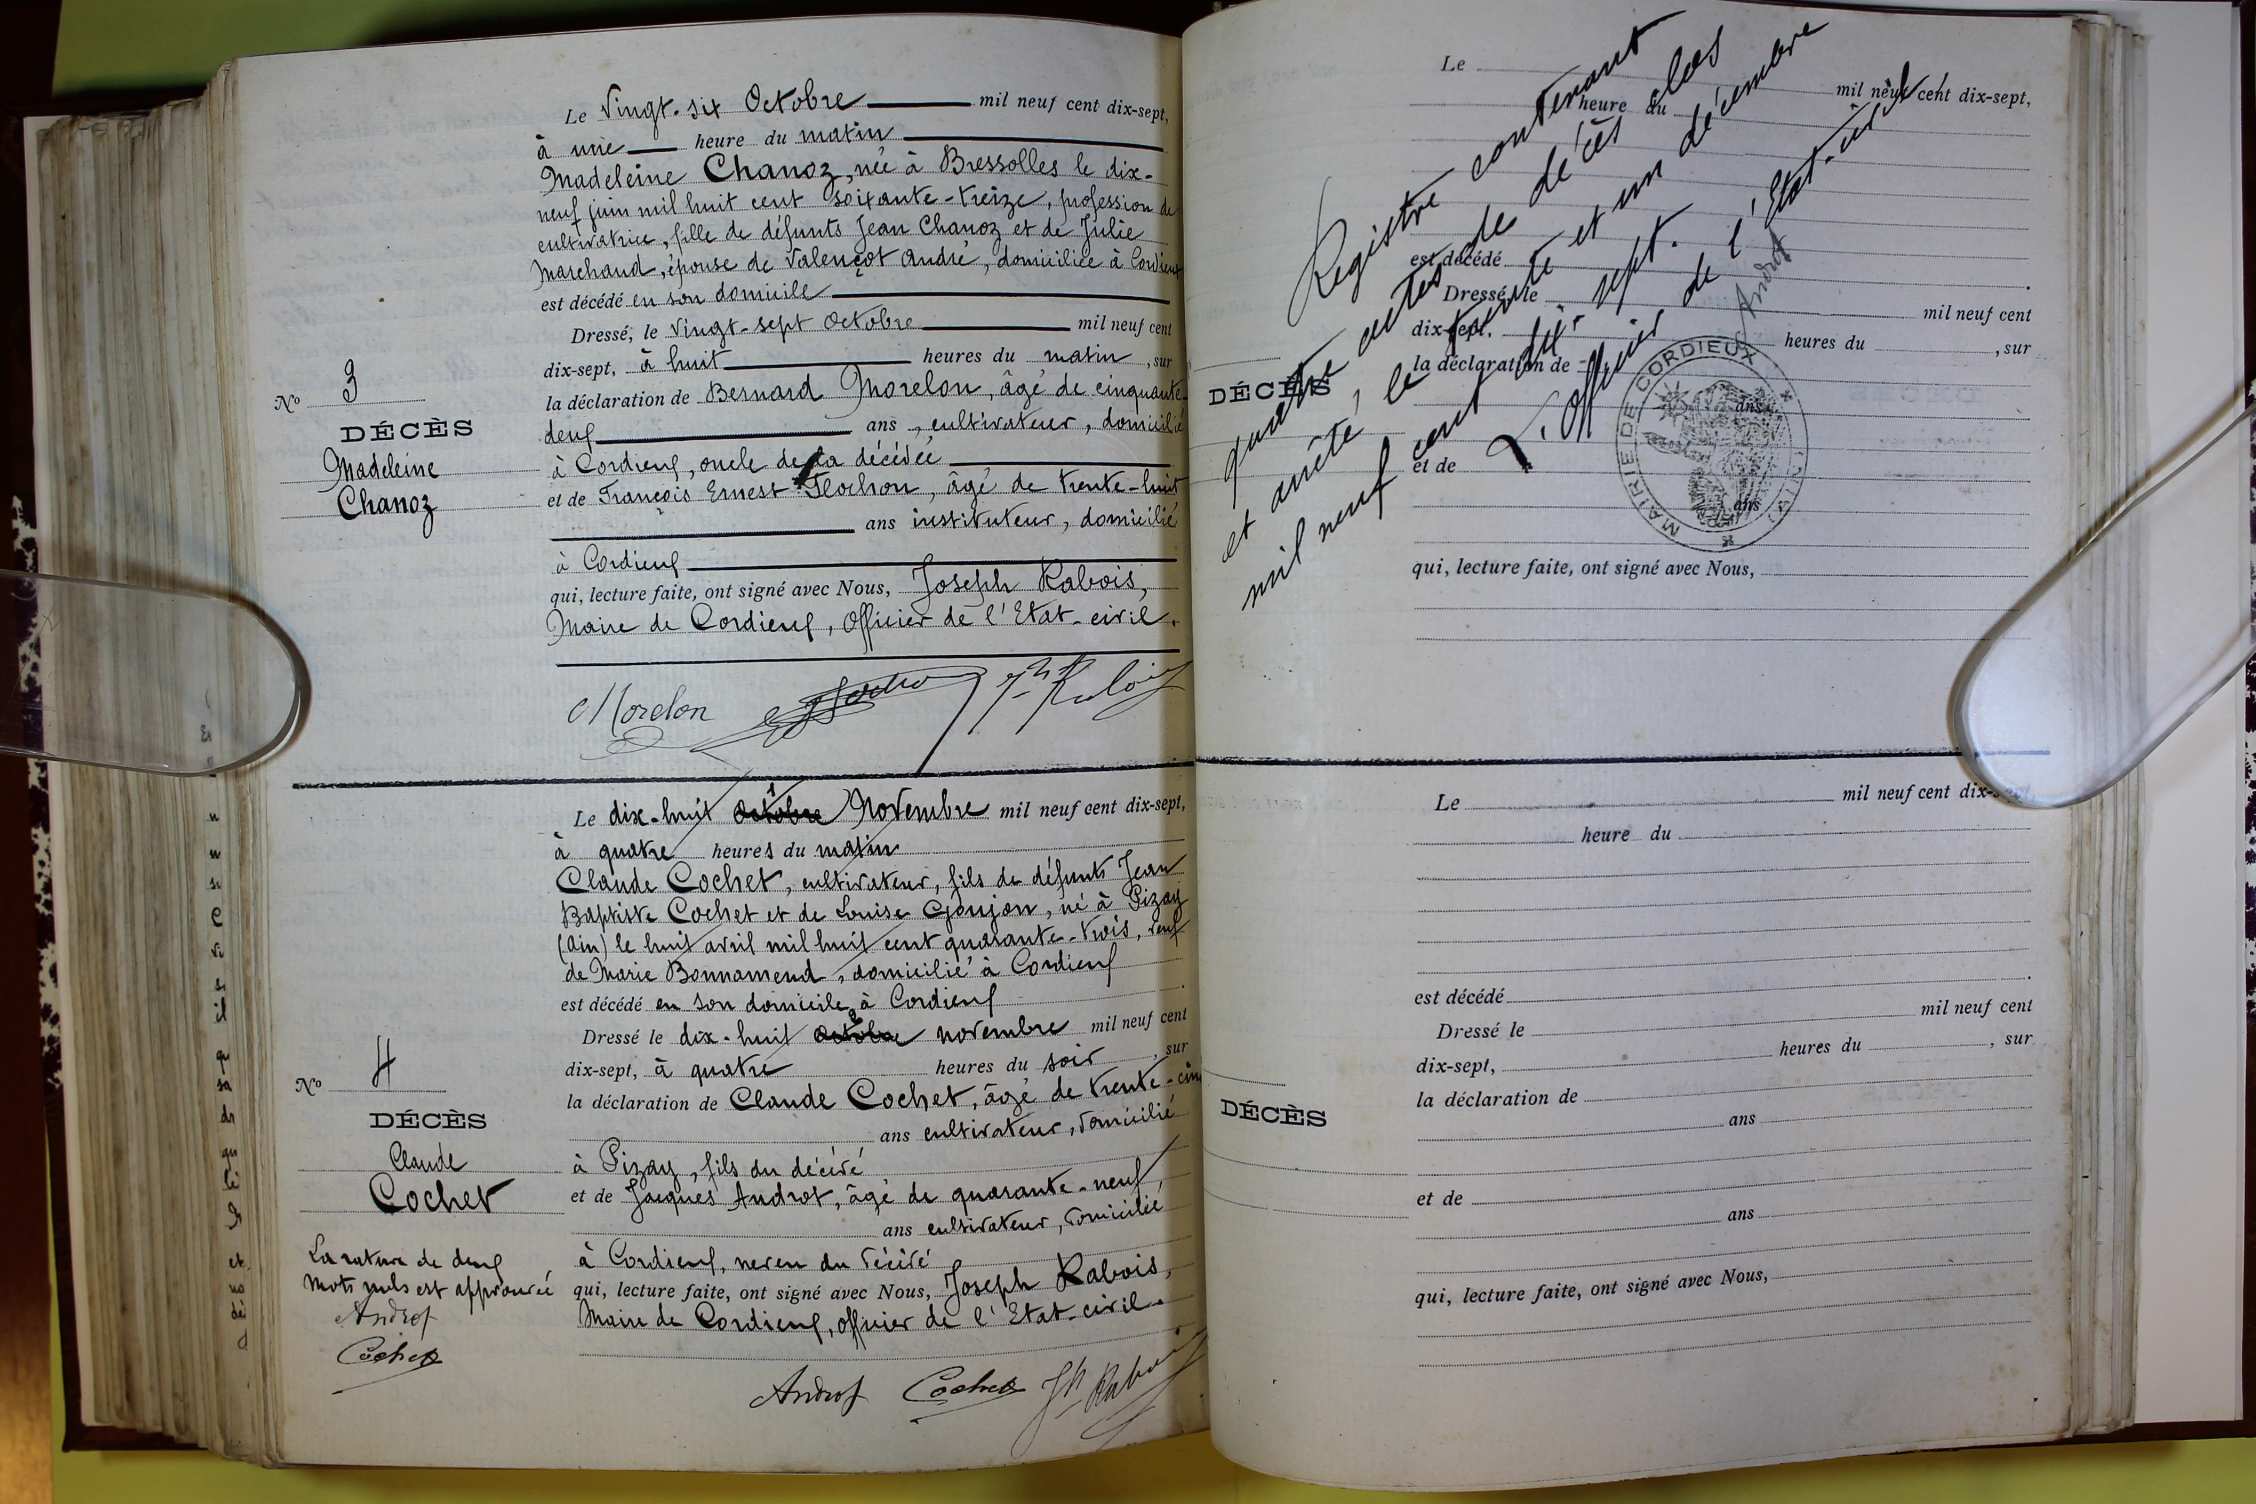 Le Vingt-six Octobre mil neuf cent dix-sept,
à une heure du matin
Madeleine Chanoz, née à Bressolles le dix-
neuf juin mil huit cent soixante-treize, profession de
cultivatrice, fille de défunts Jean Chanoz et de Julie
Marchand, épouse de Valençot André, domiciliée à Cordieux
est décédé en son domicile
Dressé, le Vingt-sept Octobre mil neuf cent
dix-sept, à huit heures du matin, sur
la déclaration de Bernard Morelon, âgé de cinquante-
deux ans, cultivateur, domicilié
à Cordieux, oncle de la décédée
et de François Ernest Flochon, âgé de trente-huit
ans instituteur, domicilié
à Cordieux
qui, lecture faite, ont signé avec Nous, Joseph Rabois,
Maire de Cordieux, Officier de l'Etat-civil.
No 3
DÉCÈS
Madeleine
Chanoz
Morelon Jh Rabois
Le dix-huit Octobre Novembre mil neuf cent dix-sept,
à quatre heures du matin
Claude Cochet, cultivateur, fils de défunts Jean
Baptiste Cochet et de Louise Goujon, né à Pizay
(Ain) le huit avril mil huit cent quarante-trois, veuf
de Marie Bonnamend, domicilié à Cordieux
est décédé en son domicile, à Cordieux.
Dressé le dix-huit Octobre novembre mil neuf cent
dix-sept, à quatre heures du soir, sur
la déclaration de Claude Cochet, âgé de trente-cinq
ans cultivateur, domicilié
à Pizay, fils du décédé
et de Jacques Androt, âgé de quarante-neuf,
ans cultivateur, domicilié
à Cordieux, neveu du décédé
qui, lecture faite, ont signé avec Nous, Joseph Rabois,
Maire de Cordieux, officier de l'Etat-civil.
No 4
DÉCÈS
Claude
Cochet
La rature de deux
mots nuls est approuvée
Androt
Cochet
Androt Cochet Jh Rabois
Registre contenant
quatre actes de décès clos
et arrêté, le trente et un décembre
mil neuf cent dix-sept.
L'Officier de l'Etat-civil
Androt
MAIRIE DE CORDIEUX (AIN)
Le mil neuf cent dix-sept,
heure du
est décédé .
Dressé, le mil neuf cent
dix-sept, heures du , sur
la déclaration de
DÉCÈS
ans
et de
ans
qui, lecture faite, ont signé avec Nous,
Le mil neuf cent dix-sept,
heure du
est décédé .
Dressé le mil neuf cent
dix-sept, heures du , sur
la déclaration de
DÉCÈS
ans
et de
ans
qui, lecture faite, ont signé avec Nous,